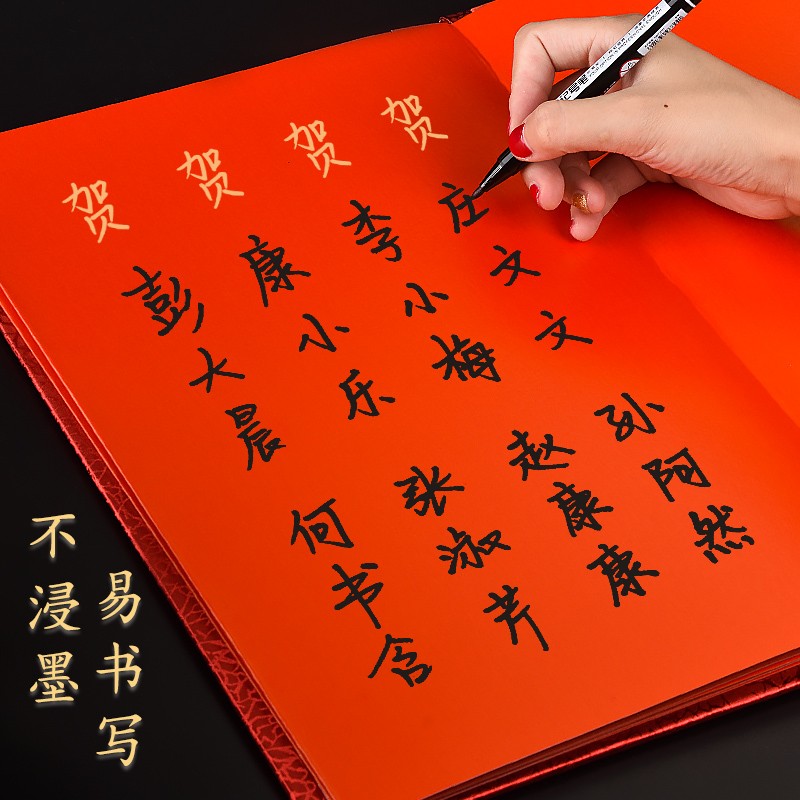 贺 贺 贺 贺
彭大晨
康小乐
李小梅
庄文文
何书含
张淑芹
赵康康
孙阿然
不浸墨
易书写
记号笔